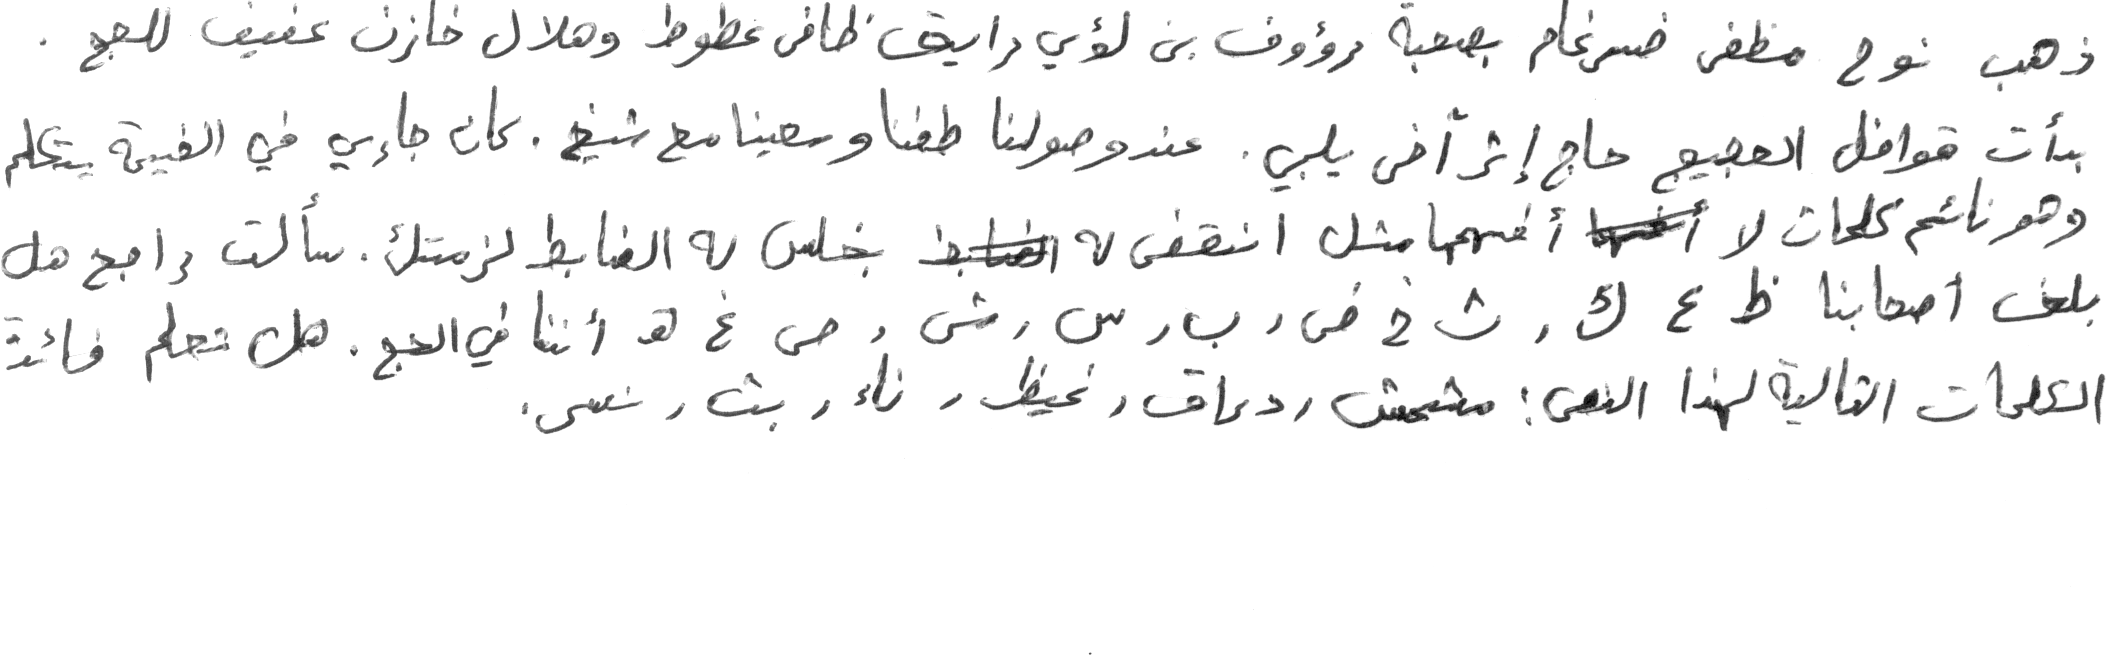 ذهب نوح مظفر ضرغام بصحبة رؤوف بن لؤي رايق ظافر عطوط وهلال خازن عفيف للحج .
بدأت قوافل الحجيج حاج إثر آخر يلبي . عند وصولنا طفنا وسعينا مع شيخ . كان جاءي في الخيمة يتكلم
وهو نائم كلمات لا أفهمها مثل انتقض له بخلس له الضابط لزمتك . سألت راجح هل
بلغت أصحابنا ظ ع ك , ث خ ض , ب , س , ش , ص غ هـ أننا في الحج . هل تعلم فائدة
الكلمات التالية لهذا النص : مشمش , دراق , غيظ , ناء , بث , نسى .